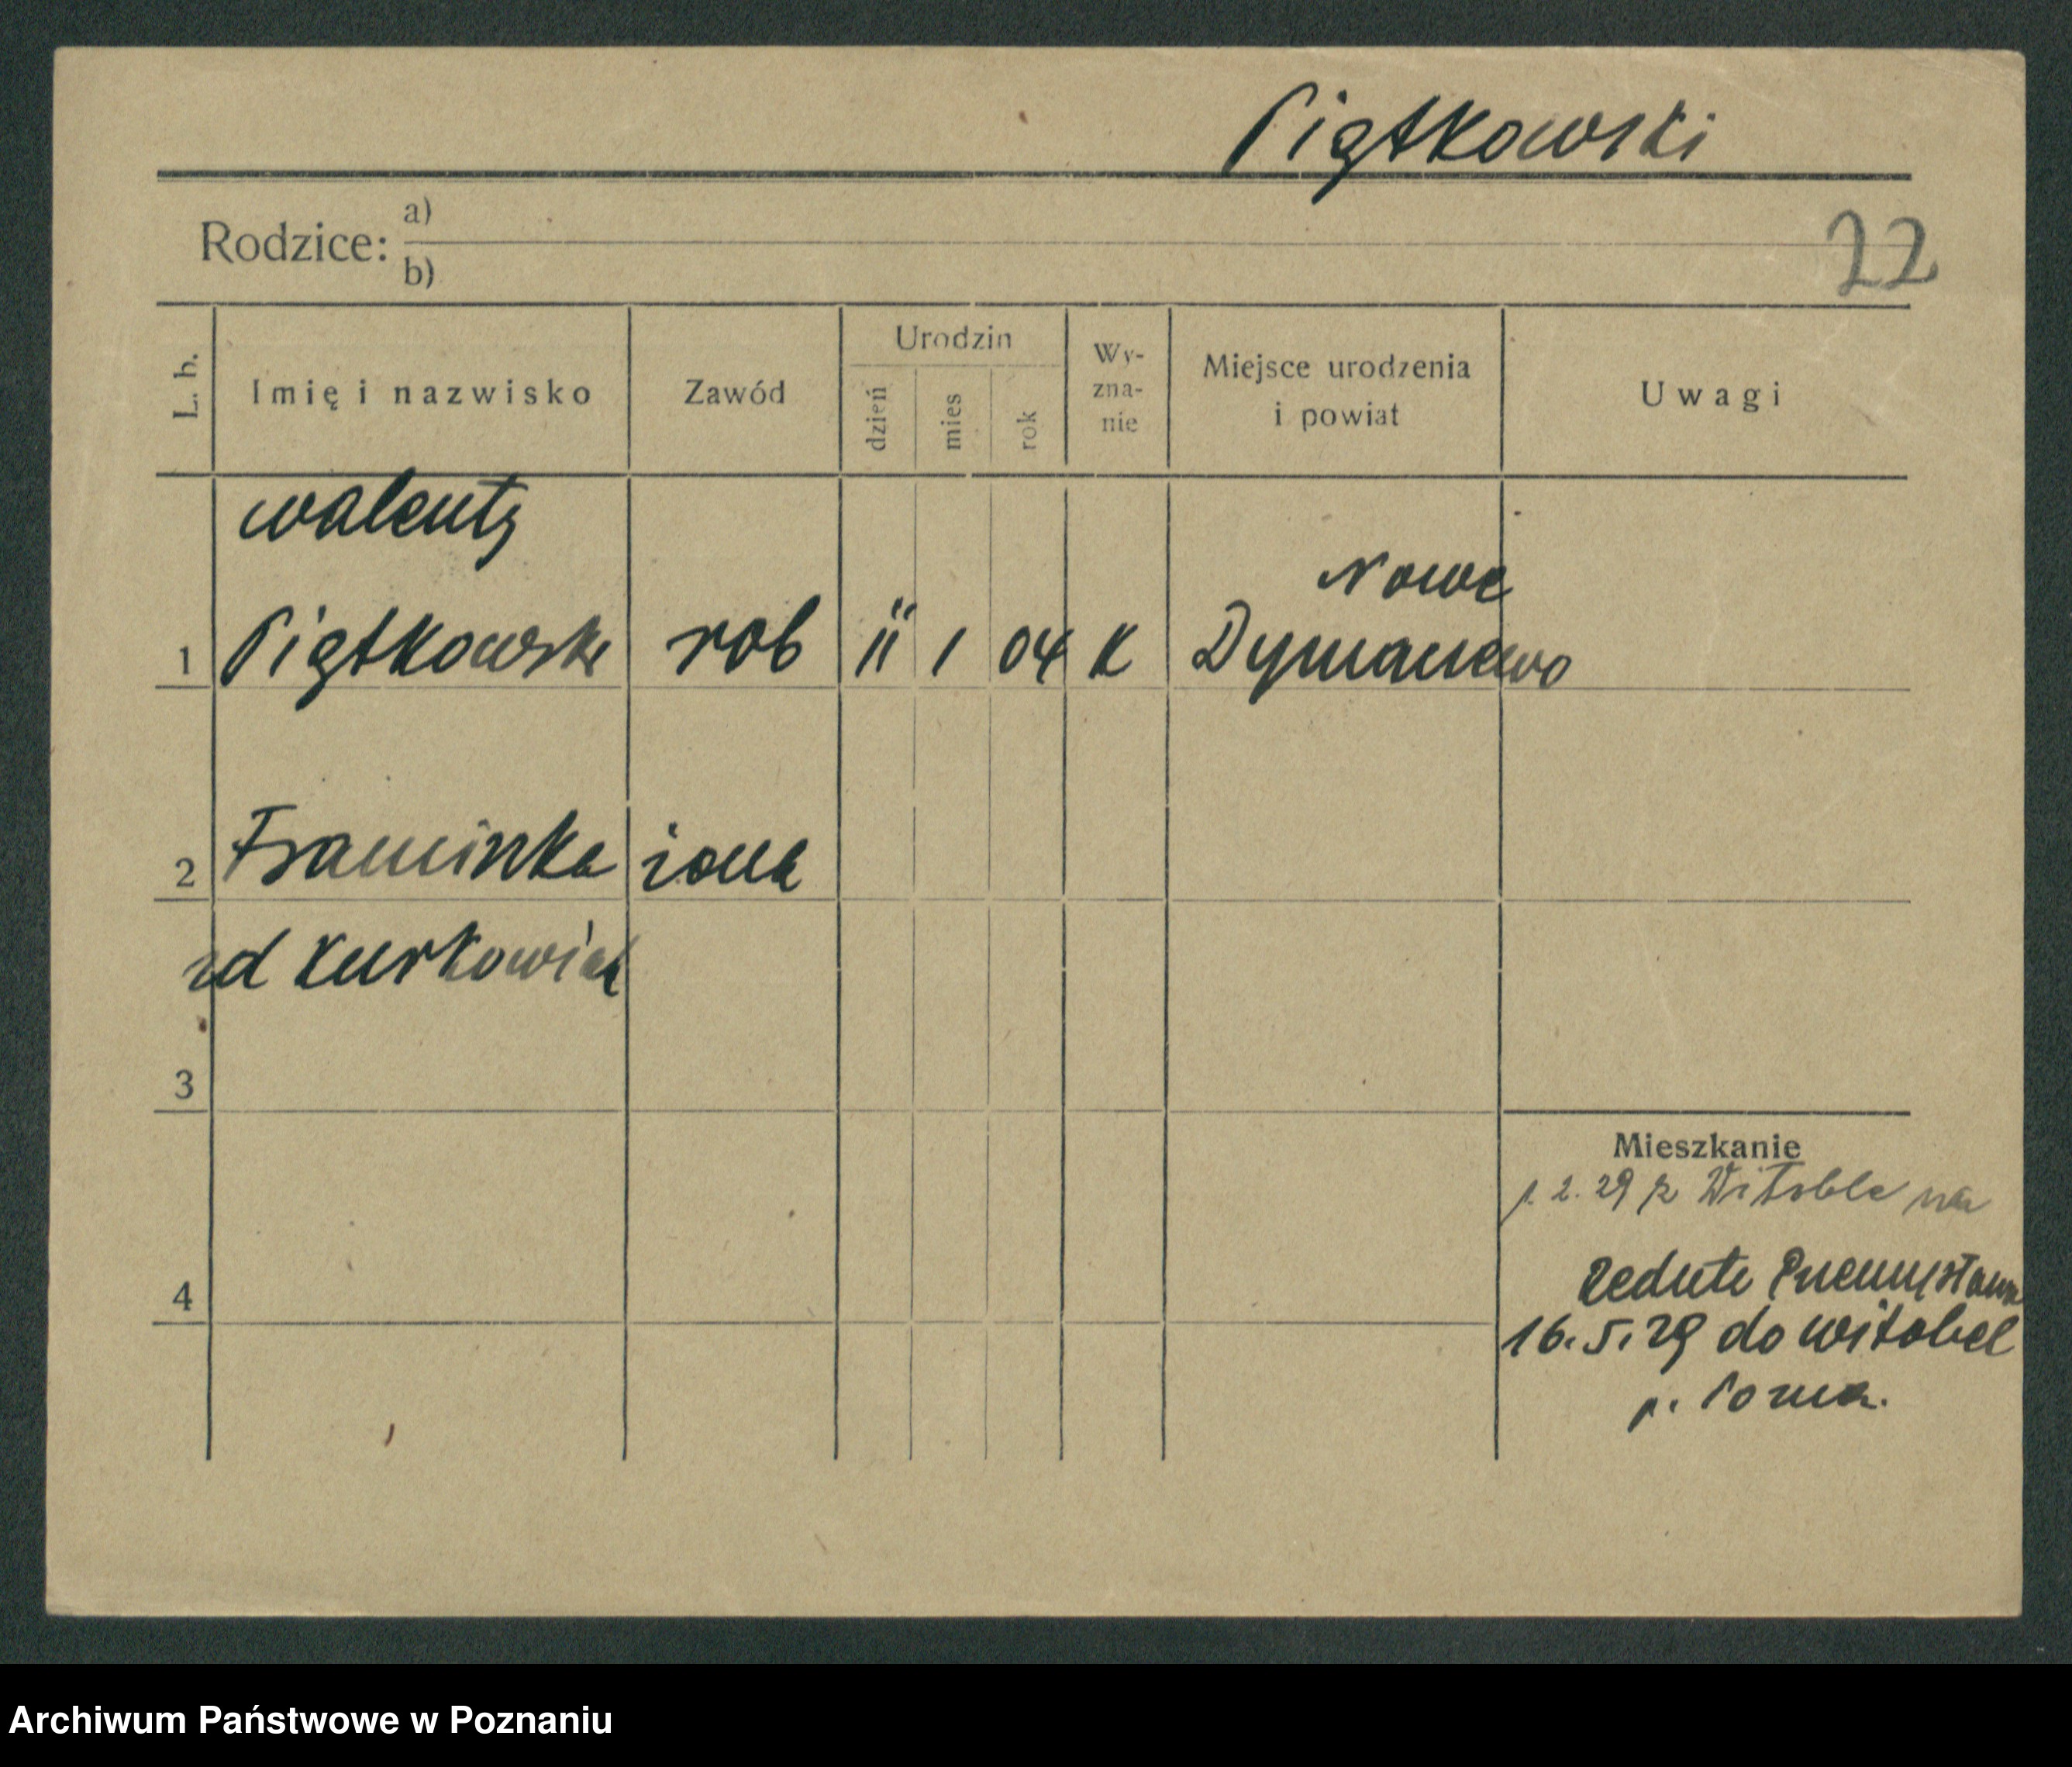 Piątkowski
Rodzice: a)
b)
22
L. b.
Imię i nazwisko
Zawód
Urodzin
dzień
mies
rok
Wy-
zna-
nie
Miejsce urodzenia
i powiat
Uwagi
walenty
Nowe
1 Piątkowski rob 11 1 04 K Dymanewo
2 Franciszka żona
zd Kurkowiak
3
Mieszkanie
1. 2. 29 z Witoble na
Redute Przemysława
4
16.5.29 do witobel
p. Pozna.
Archiwum Państwowe w Poznaniu